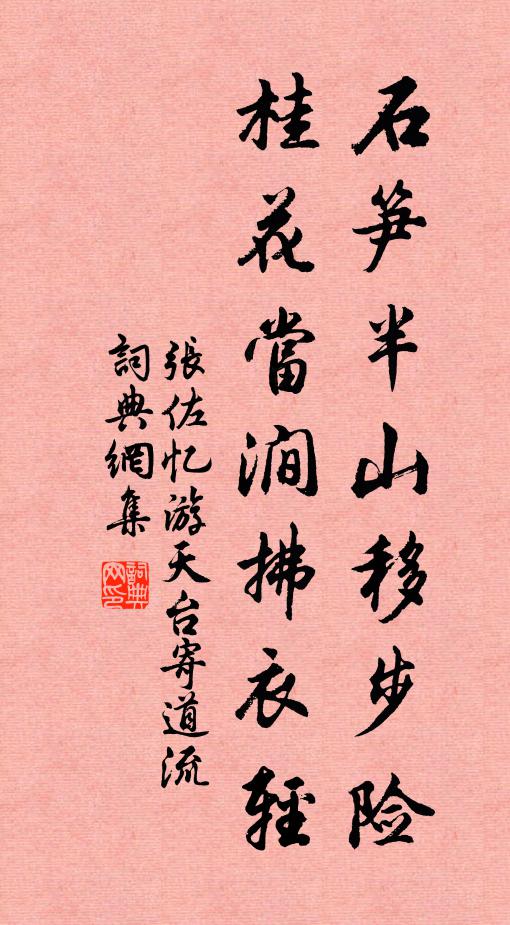 石笋半山移步险
桂花當澗拂衣輕
張佐忆游天台寄道流
詞典網集
詞典网印